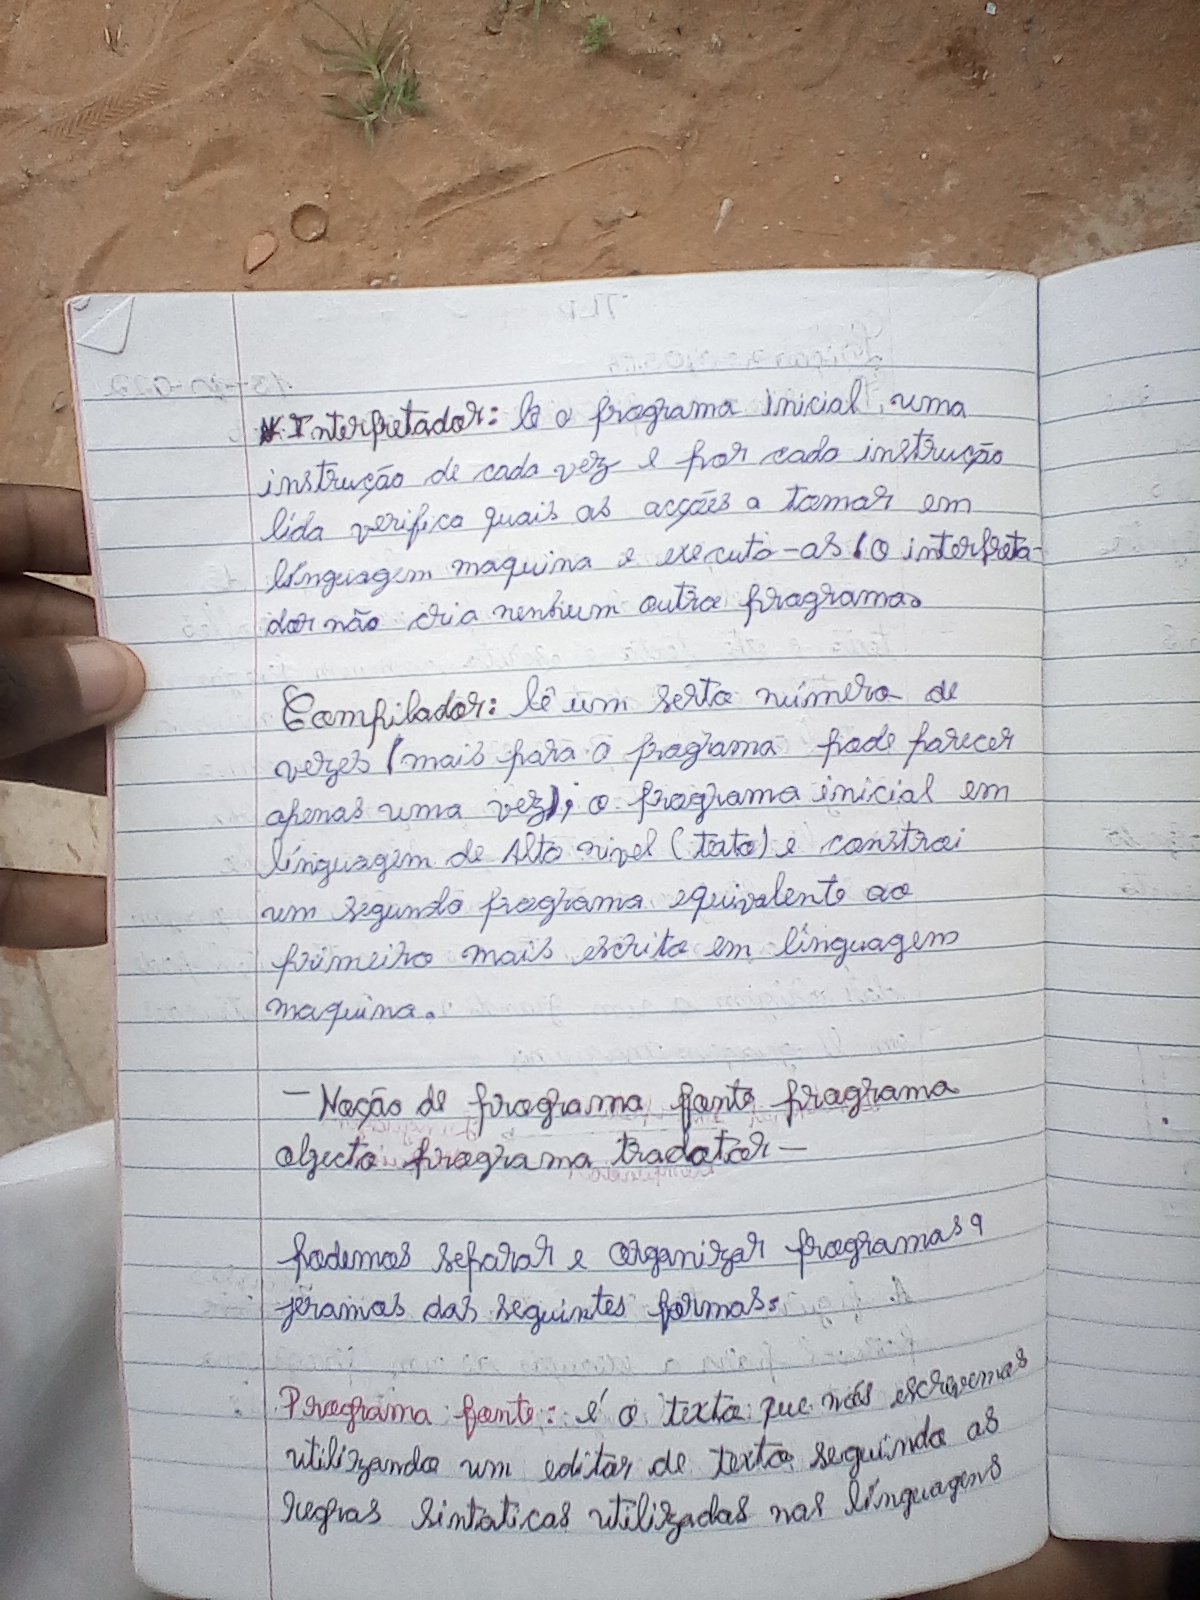 Interpretador: lê o programa inicial, uma
instrução de cada vez e por cada instrução
lida verifica quais as acções a tomar em
línguagem maquina e executa-as (o interpreta-
dor não cria nenhum outro programa.
Compilador: lê um serto número de
vezes (mais para o programa pode parecer
apenas uma vez), o programa inicial em
línguagem de Alto nivel (texto) e constroi
um segundo programa equivalente ao
primeiro mais escrito em línguagem
maquina.
- Noção de programa fonte programa
objecto programa tradotor -
podemos separar e organizar programas q
jeramos das seguintes formas:
Programa fonte: é o texto que nós escrevemos
utilizando um editor de texto seguindo as
regras sintaticas utilizadas nas línguagens